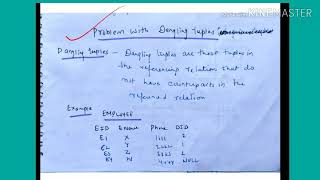 Made with KINEMASTER
Problem with Dangling Tuples
Dangling tuples - Dangling tuples are those tuples in
the referencing relation that do
not have counterparts in the
referenced relation
Example EMPLOYEE
EID Ename Phone DID
E1 X 1111 2
E2 Y 2222 1
E3 Z 3333 1
E4 W 4444 NULL